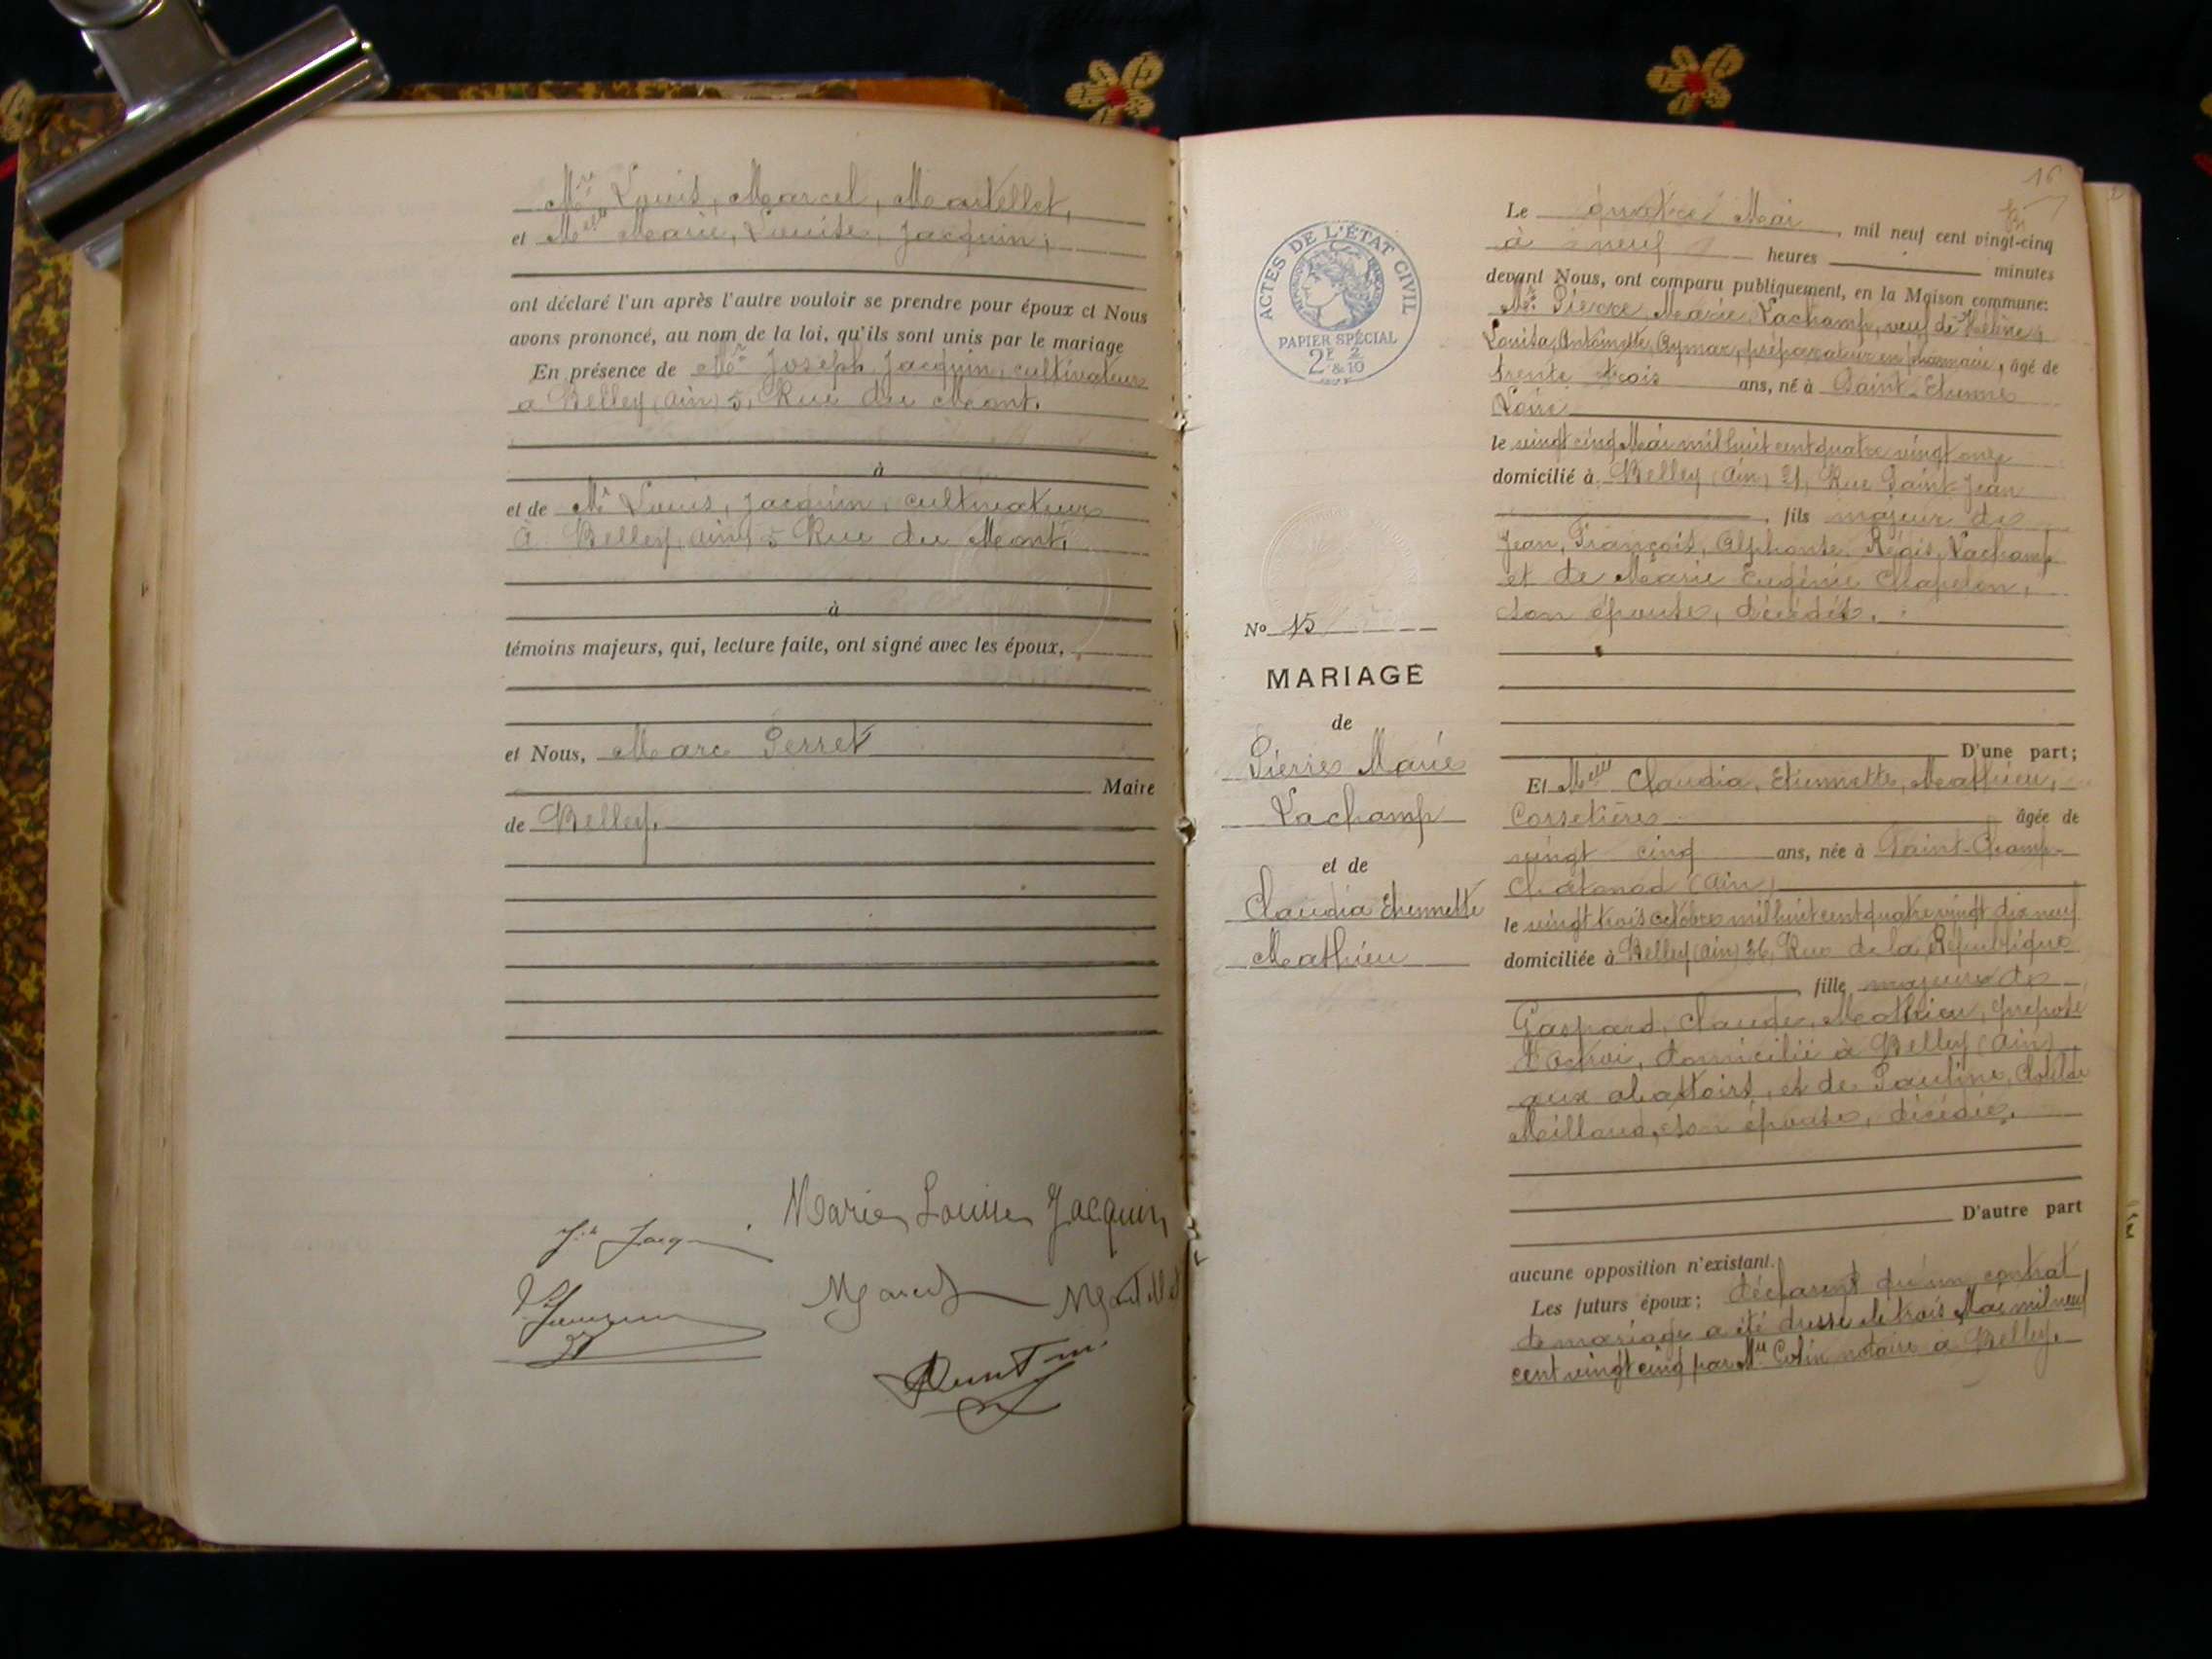 Mr Louis, Marcel, Martellet,
et Melle Marie, Louise, Jacquin,
ont déclaré l'un après l'autre vouloir se prendre pour époux et Nous
avons prononcé, au nom de la loi, qu'ils sont unis par le mariage
En présence de Mr Joseph Jacquin, cultivateur
à Belley (Ain) 5, Rue du Mont.
à
et de Mr Louis, Jacquin, cultivateur
à Belley (Ain) 5 Rue du Mont,
à
témoins majeurs, qui, lecture faite, ont signé avec les époux,
et Nous, Marc Perret
Maire
de Belley.
Marie Louise Jacquin
16
ACTES DE L'ÉTAT CIVIL
PAPIER SPÉCIAL
2F & 2/10
No 15
MARIAGE
de
Pierre Marie
Vachamp
et de
Claudia Etiennette
Mathieu
Le quatre Mai, mil neuf cent vingt-cinq
à neuf heures minutes
devant Nous, ont comparu publiquement, en la Maison commune:
Mr Pierre, Marie, Vachamp, veuf de Hélène,
Louisa, Antoinette, Aymar, préparateur en pharmacie, âgé de
trente trois ans, né à Saint-Etienne
Loire
le vingt cinq Mai mil huit cent quatre vingt onze
domicilié à Belley (Ain) 21, Rue Saint Jean
, fils majeur de
Jean, François, Alphonse, Régis, Vachamp
et de Marie Eugénie Chapelon,
son épouse, décédés.
D'une part;
Et Melle Claudia, Etiennette, Mathieu,
Corsetière âgée de
vingt cinq ans, née à Saint-Champ-
Chatonod (Ain)
le vingt trois octobre mil huit cent quatre vingt dix neuf
domiciliée à Belley (Ain) 26, Rue de la République
, fille majeure de
Gaspard, Claude, Mathieu, préposé
d'octroi, domicilié à Belley (Ain),
aux abattoirs, et de Pauline, Clotilde
Meilland, son épouse, décédée.
D'autre part
aucune opposition n'existant.
Les futurs époux; déclarent qu'un contrat
de mariage a été dressé le trois Mai mil neuf
cent vingt cinq par Me Colin notaire à Belley.